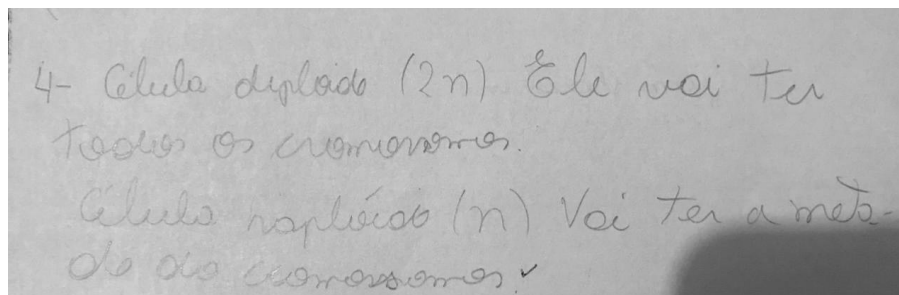 4- Célula diploide (2n) Ele vai ter
todos os cromossomos.
Célula haploide (n) Vai ter a meta-
de do cromossomos.